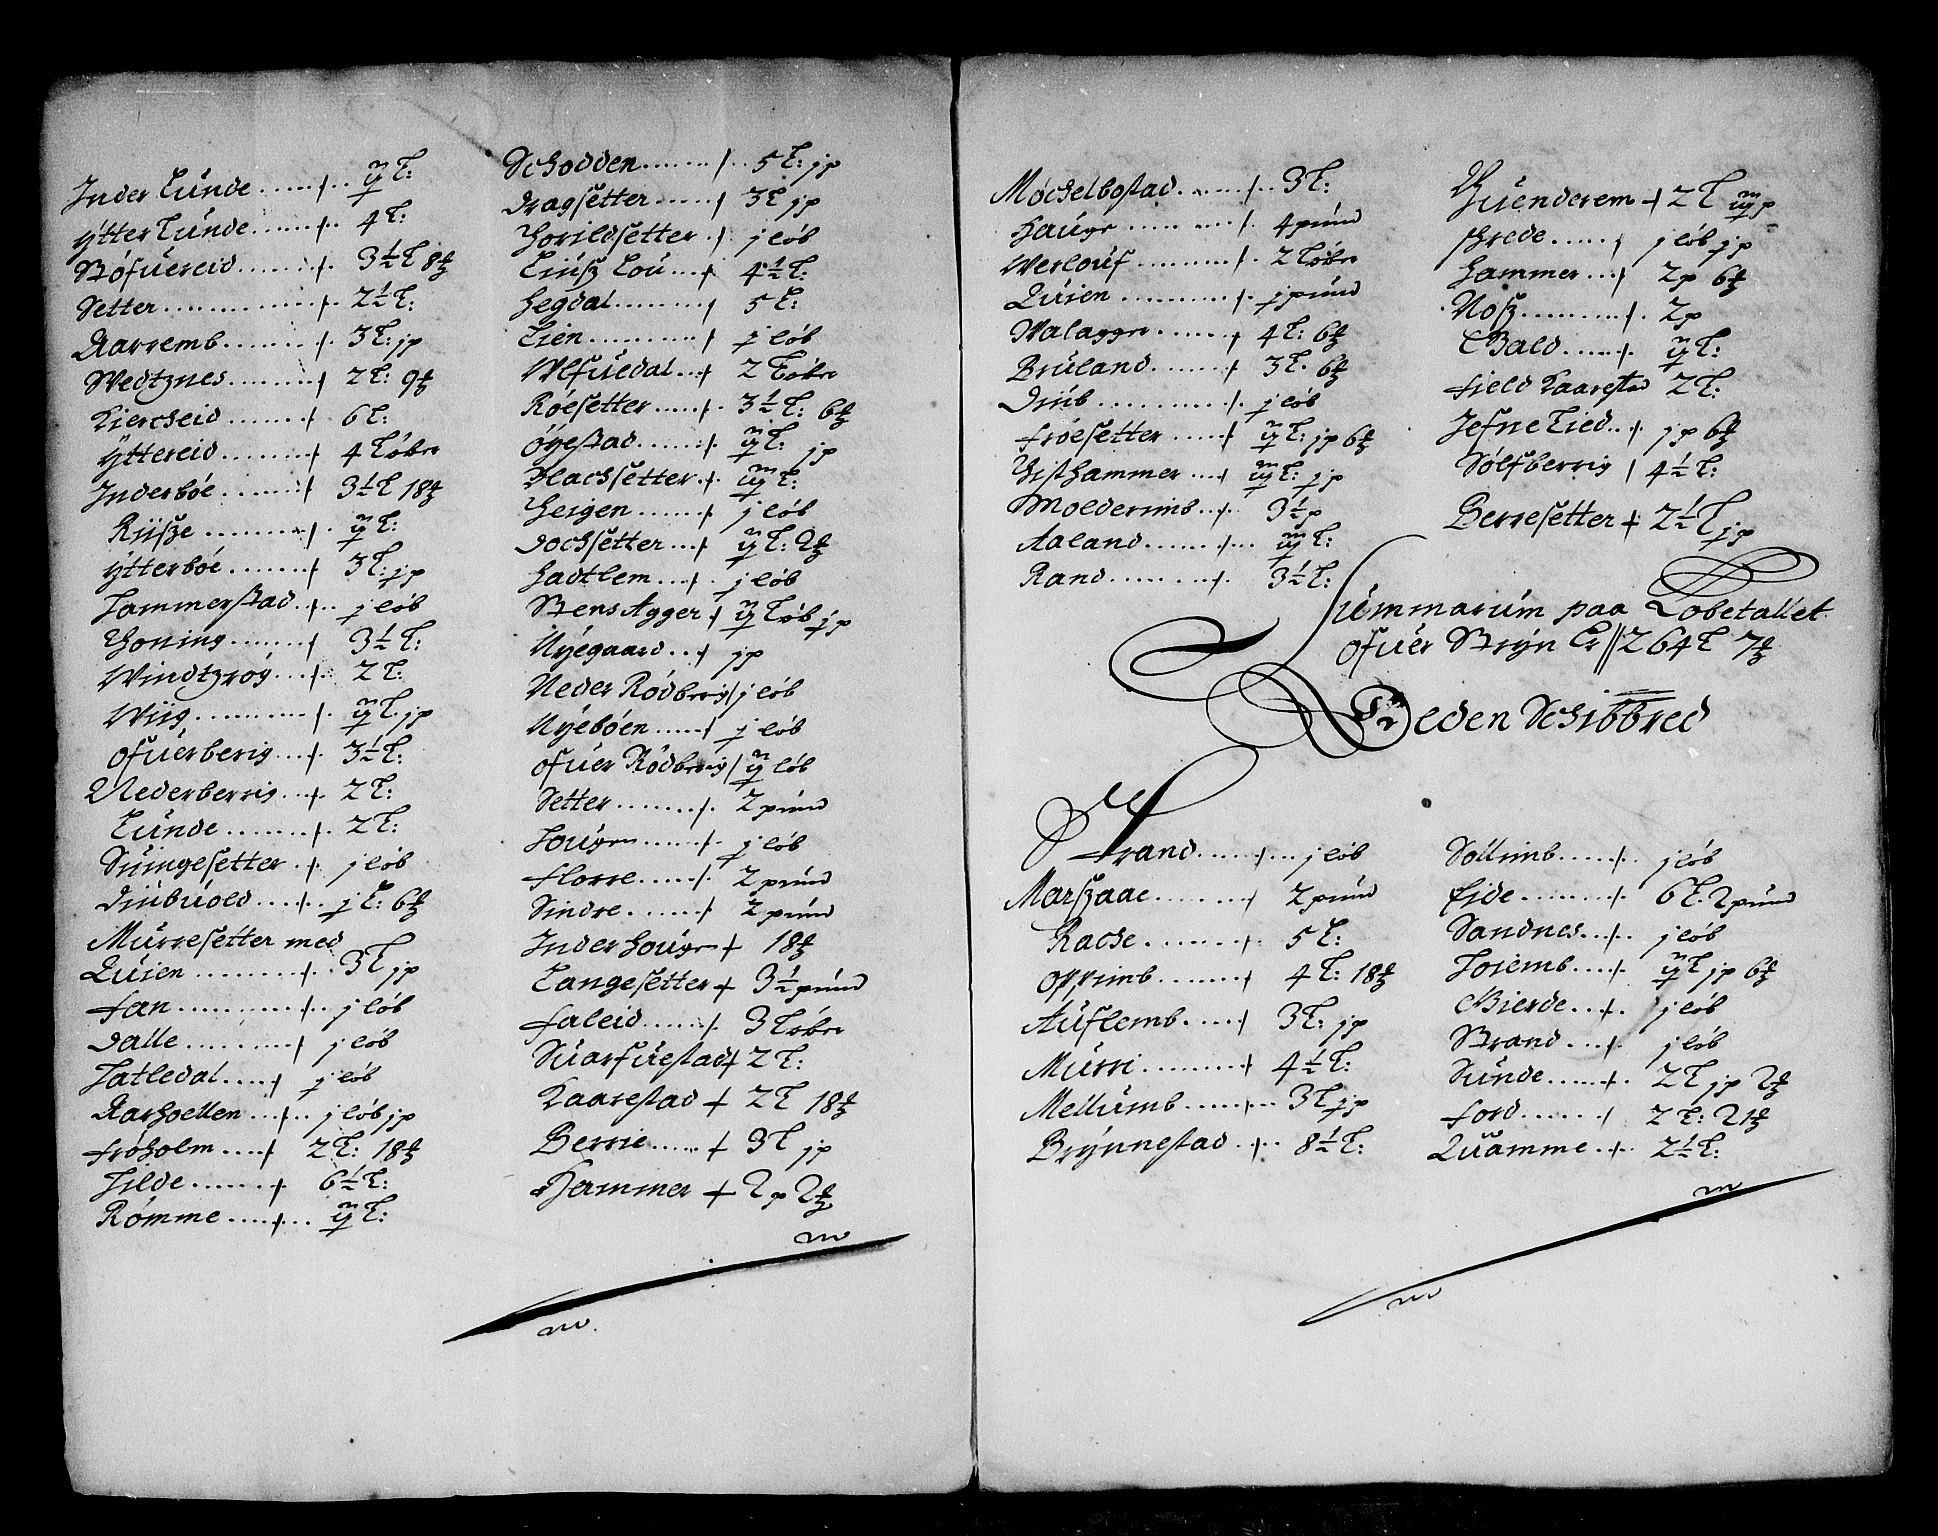 Inder Tunde ...... ij L:
Ytter Tunde ...... 4 L:
Stófuereid ...... 3½ L 8 ℔
Setter ...... 2½ L:
Aarremb ...... 3 L: j p
Wedtznes ...... 2 L: 9 ℔
Kiercheid ...... 6 L:
Yttereid ...... 4 Lóbe
Inderbóe ...... 3½ L 18 ℔
Riisze ...... ij L:
Ytterbóe ...... 3 L: j p
Hammerstad ...... j lób
Honing ...... 3½ L:
Windtzróg ...... 2 L:
Wiig ...... ij L. j p
Ofuerberig ...... 3½ L:
Nederberrig ...... 2 L:
Tunde ...... 2 L:
Suingesetter ...... j lób
Diubuold ...... j L: 6 ℔
Murresetter med
Quien ...... 3 L j p
Fan ...... j lób
Dalle ...... j lób
Hatledal ...... j lób
Aarhoellen ...... j lób j p
Fróholm ...... 2 L: 18 ℔
Hilde ...... 6½ L:
Rómme ...... ij L:
Schodden ...... 5 L: j p
Dragsetter ...... 3 L j p
Horildsetter ...... j lób
Liusz Lou ...... 4½ L:
Hegdal ...... 5 L:
Lien ...... j lób
Ulfuedal ...... 2 Lóbe
Róesetter ...... 3½ L: 6 ℔
Óyestad ...... ij L: j p
Blachsetter ...... iij L:
Heigen ...... j lób
Dochsetter ...... ij L: 2 ℔
Hadtlem ...... j lób
Stens Agger ij Lób j p
Nyegaard ...... j p
Neder Ródberrig j lób
Nyebóen ...... j lób
Ofuer Ródberrig ij lób
Setter ...... 2 pund
Hougen ...... j lób
Florre ...... 2 pund
Sindre ...... 2 pund
Inder Houge 18 ℔
Langesetter 3½ pund
Faleid ...... 3 Lóbe
Suarfuestad 2 L:
Kaarestad 2 L 18 ℔
Berrie ...... 3 L j p
Hammer 2 p 2 ℔
Móchelbostad ...... 3 L:
Hauge ...... 4 pund
Werlouf ...... 2 Lóbe
Quien ...... j pund
Walagger ...... 4 L: 6 ℔
Bruland ...... 3 L. 6 ℔
Diub ...... j lób
Fróesetter ...... ij L: j p 6 ℔
Gisthammer ...... iij L: j p
Molderimb ...... 3½ p
Aaland ...... iij L:
Rand ...... 3½ L:
Guenderem 2 L iij p
Skrede ...... j lób j p
Hammer ...... 2 p 6 ℔
Nosz ...... 2 p
Bald ...... ij L:
Field Kaarestad 2 L:
Jefne Lied ...... j p 6 ℔
Sólfberrig 4½ L:
Berresetter 2½ L j p
Summarum paa Lobetallet
ofuer Stryn Er 264 L 7 ℔
Eeden Schibbred
Strand ...... j lób
Marszaae ...... 2 pund
Rache ...... 5 L:
Oppimb ...... 4 L: 18 ℔
Auflemb ...... 3 L: j p
Murri ...... 4½ L:
Mellumb ...... 3 L j p
Brynnestad ...... 8½ L:
Sollimb ...... j lób
Eide ...... 6 L. 2 pund
Sandnes ...... j lób
Hoiemb ...... ij L j p 6 ℔
Gierde ...... j lób
Strand ...... j lób
Sunde ...... 2 L j p 2 ℔
Ford ...... 2 L: 21 ℔
Quamme ...... 2½ L: